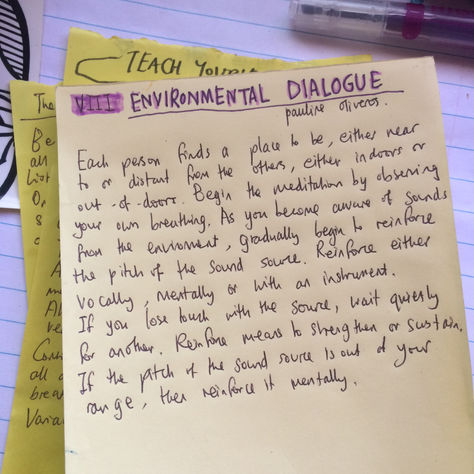 TEACH YOURSEL
VIII ENVIRONMENTAL DIALOGUE
pauline oliveros.
Each person finds a place to be, either near
to or distant from the others, either indoors or
out-of-doors. Begin the meditation by observing
your own breathing. As you become aware of sounds
from the enviroment, gradually begin to reinforce
the pitch of the sound source. Reinforce either
vocally, mentally or with an instrument.
If you lose touch with the source, wait quietly
for another. Reinforce means to strengthen or sustain.
If the pitch of the sound source is out of your
range, then reinforce it mentally.
The
Be
all
List
On
S
A
Al
ve
Con
all
brea
Varia